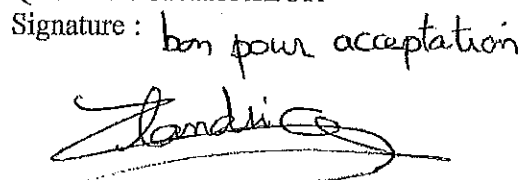 Signature : bon pour acceptation